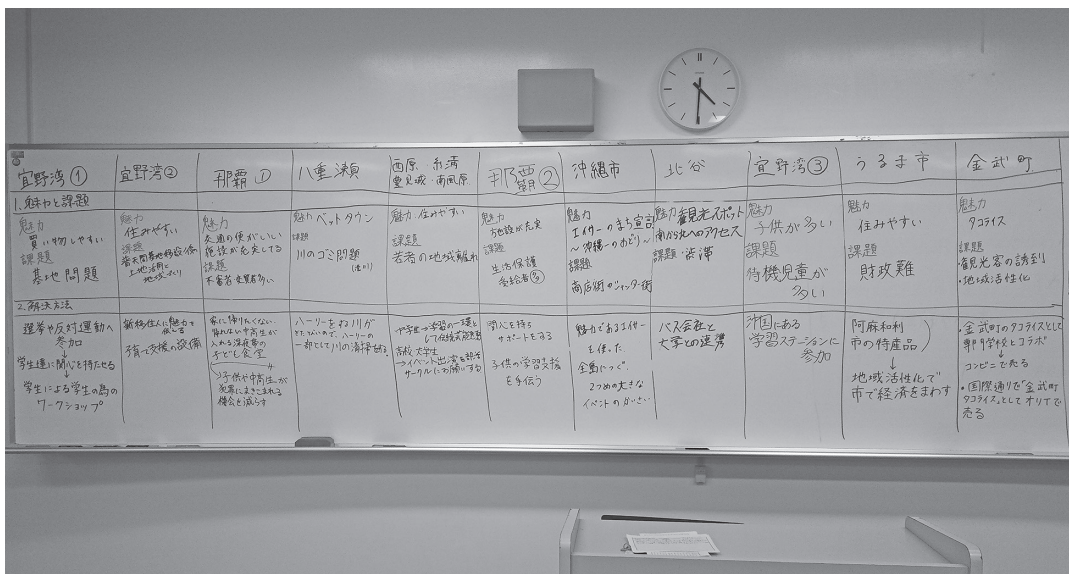 宜野湾①
宜野湾②
那覇①
八重瀬
西原、糸満
豊見城・南風原
那覇②
沖縄市
北谷
宜野湾③
うるま市
金武町
1.魅力と課題
魅力
買い物しやすい
課題
基地問題
魅力
住みやすい
課題
普天間基地移設後の
土地活用と
地域づくり
魅力
交通の便がいい
施設が充実してる
課題
不審者、変質者多い
魅力 ベットタウン
課題
川のゴミ問題
魅力・住みやすい
課題
若者の地域離れ
魅力
施設が充実
課題
生活保護
受給者多
魅力
エイサーのまち宣言
〜沖縄一のおどり〜
課題
商店街がシャッター街
魅力 観光スポット
南から北へのアクセス
課題・渋滞
魅力
子供が多い
課題
待機児童が
多い
魅力
住みやすい
課題
財政難
魅力
タコライス
課題
・観光客の誘到
・地域活性化
2.解決方法
選挙や反対運動へ
参加
↓
学生達に関心を持たせる
↓
学生による学生の為の
ワークショップ
新移住人に魅力を
子育て支援の設備
家に帰りたくない、
帰れない中高生が
入れる深夜帯の
子ども食堂
子供や中高生が
犯罪にまきこまれる
機会を減らす
ハーリーをする川が
きたないので、ハーリーの
一部として川の清掃をする。
中学生→学習の一環と
して伝統芸能を
高校、大学生
→イベント出演を部活
サークルにお願いする
関心を持ち
サポートをする
子供の学習支援
を手伝う
魅力であるエイサー
を使った
全島やって、
2つめの大きな
イベントのかいさい
バス会社と
大学との連携
沖国にある
学習ステーションに
参加
阿麻和利
市の特産品)
↓
地域活性化で
市で経済をまわす
・金武町のタコライスとして
専門学校とコラボ
↓
コンビニで売る
・国際通りで「金武町
タコライス」としてオリTで
売る